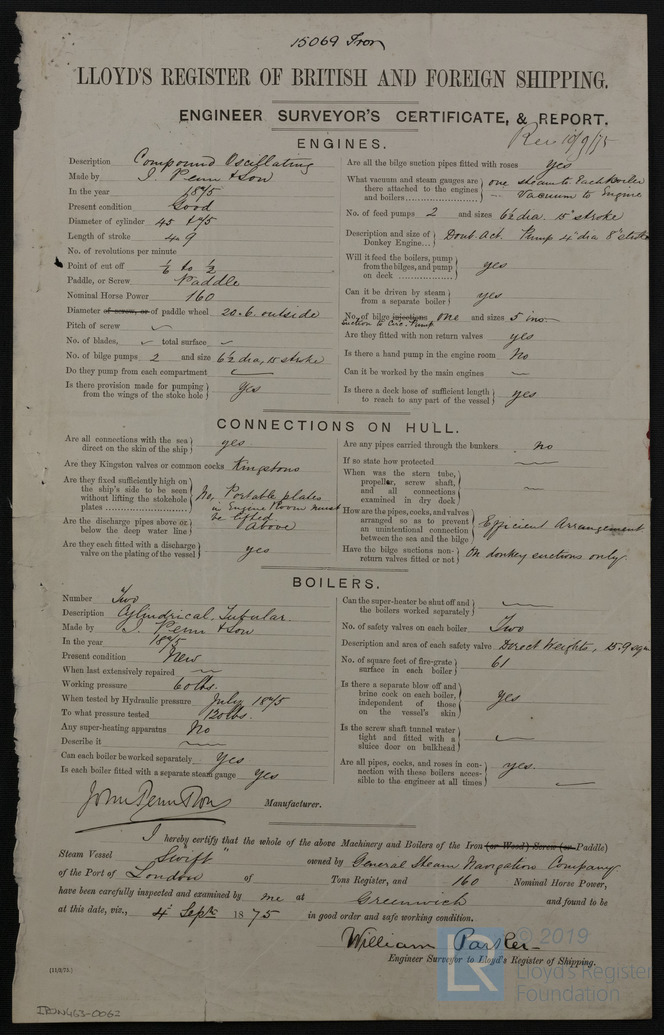 15069 Iron
LLOYD'S REGISTER OF BRITISH AND FOREIGN SHIPPING.
ENGINEER SURVEYOR'S CERTIFICATE, & REPORT.
Rec 10/9/75
ENGINES.
Description Compound Oscillating
Made by J. Penn & Son
In the year 1875
Present condition Good
Diameter of cylinder 45 & 75
Length of stroke 4.9
No. of revolutions per minute
Point of cut off 1/6 to 1/2
Paddle, or Screw Paddle
Nominal Horse Power 160
Diameter of screw, or of paddle wheel 20.6 outside
Pitch of screw
No. of blades, total surface
No. of bilge pumps 2 and size 6½ dia, 15 stroke
Do they pump from each compartment
Is there provision made for pumping from the wings of the stoke hole } Yes
Are all the bilge suction pipes fitted with roses yes
What vacuum and steam gauges are there attached to the engines and boilers } one steam to Each boiler - Vacuum to Engine
No. of feed pumps 2 and sizes 6½ dia. 15" stroke
Description and size of Donkey Engine } Doub. Act. Pump 4" dia 8" stroke
Will it feed the boilers, pump from the bilges, and pump on deck } yes
Can it be driven by steam from a separate boiler } yes
No. of bilge injections one and sizes 5 ins.
Suction to Circ. Pump
Are they fitted with non return valves yes
Is there a hand pump in the engine room No
Can it be worked by the main engines
Is there a deck hose of sufficient length to reach to any part of the vessel } yes
CONNECTIONS ON HULL.
Are all connections with the sea direct on the skin of the ship } yes
Are they Kingston valves or common cocks Kingstons
Are they fixed sufficiently high on the ship's side to be seen without lifting the stokehole plates } No, Portable plates in Engine Room must be lifted.
Are the discharge pipes above or below the deep water line } above
Are they each fitted with a discharge valve on the plating of the vessel } yes
Are any pipes carried through the bunkers No
If so state how protected
When was the stern tube, propeller, screw shaft, and all connections examined in dry dock }
How are the pipes, cocks, and valves arranged so as to prevent an unintentional connection between the sea and the bilge } Efficient Arrangement
Have the bilge suctions non-return valves fitted or not } On donkey suctions only.
BOILERS.
Number Two
Description Cylindrical, Tubular.
Made by J. Penn & Son
In the year 1875
Present condition New
When last extensively repaired
Working pressure 60 lbs.
When tested by Hydraulic pressure July 1875
To what pressure tested 120 lbs.
Any super-heating apparatus No
Describe it
Can each boiler be worked separately Yes
Is each boiler fitted with a separate steam gauge Yes
Can the super-heater be shut off and the boilers worked separately }
No. of safety valves on each boiler Two
Description and area of each safety valve Direct Weights, 15.9 sqre
No. of square feet of fire-grate surface in each boiler } 61
Is there a separate blow off and brine cock on each boiler, independent of those on the vessel's skin } Yes
Is the screw shaft tunnel water tight and fitted with a sluice door on bulkhead }
Are all pipes, cocks, and roses in connection with these boilers accessible to the engineer at all times } yes.
John Penn & Son Manufacturer.
I hereby certify that the whole of the above Machinery and Boilers of the Iron (or Wood) Screw (or Paddle)
Steam Vessel "Swift" owned by General Steam Navigation Company
of the Port of London of Tons Register, and 160 Nominal Horse Power,
have been carefully inspected and examined by me at Greenwich and found to be
at this date, viz., 4th Septr 1875 in good order and safe working condition.
William Parker
Engineer Surveyor to Lloyd's Register of Shipping.
(11/2/75.)
IRON463-0062
© 2019
LR
Lloyd's Register
Foundation